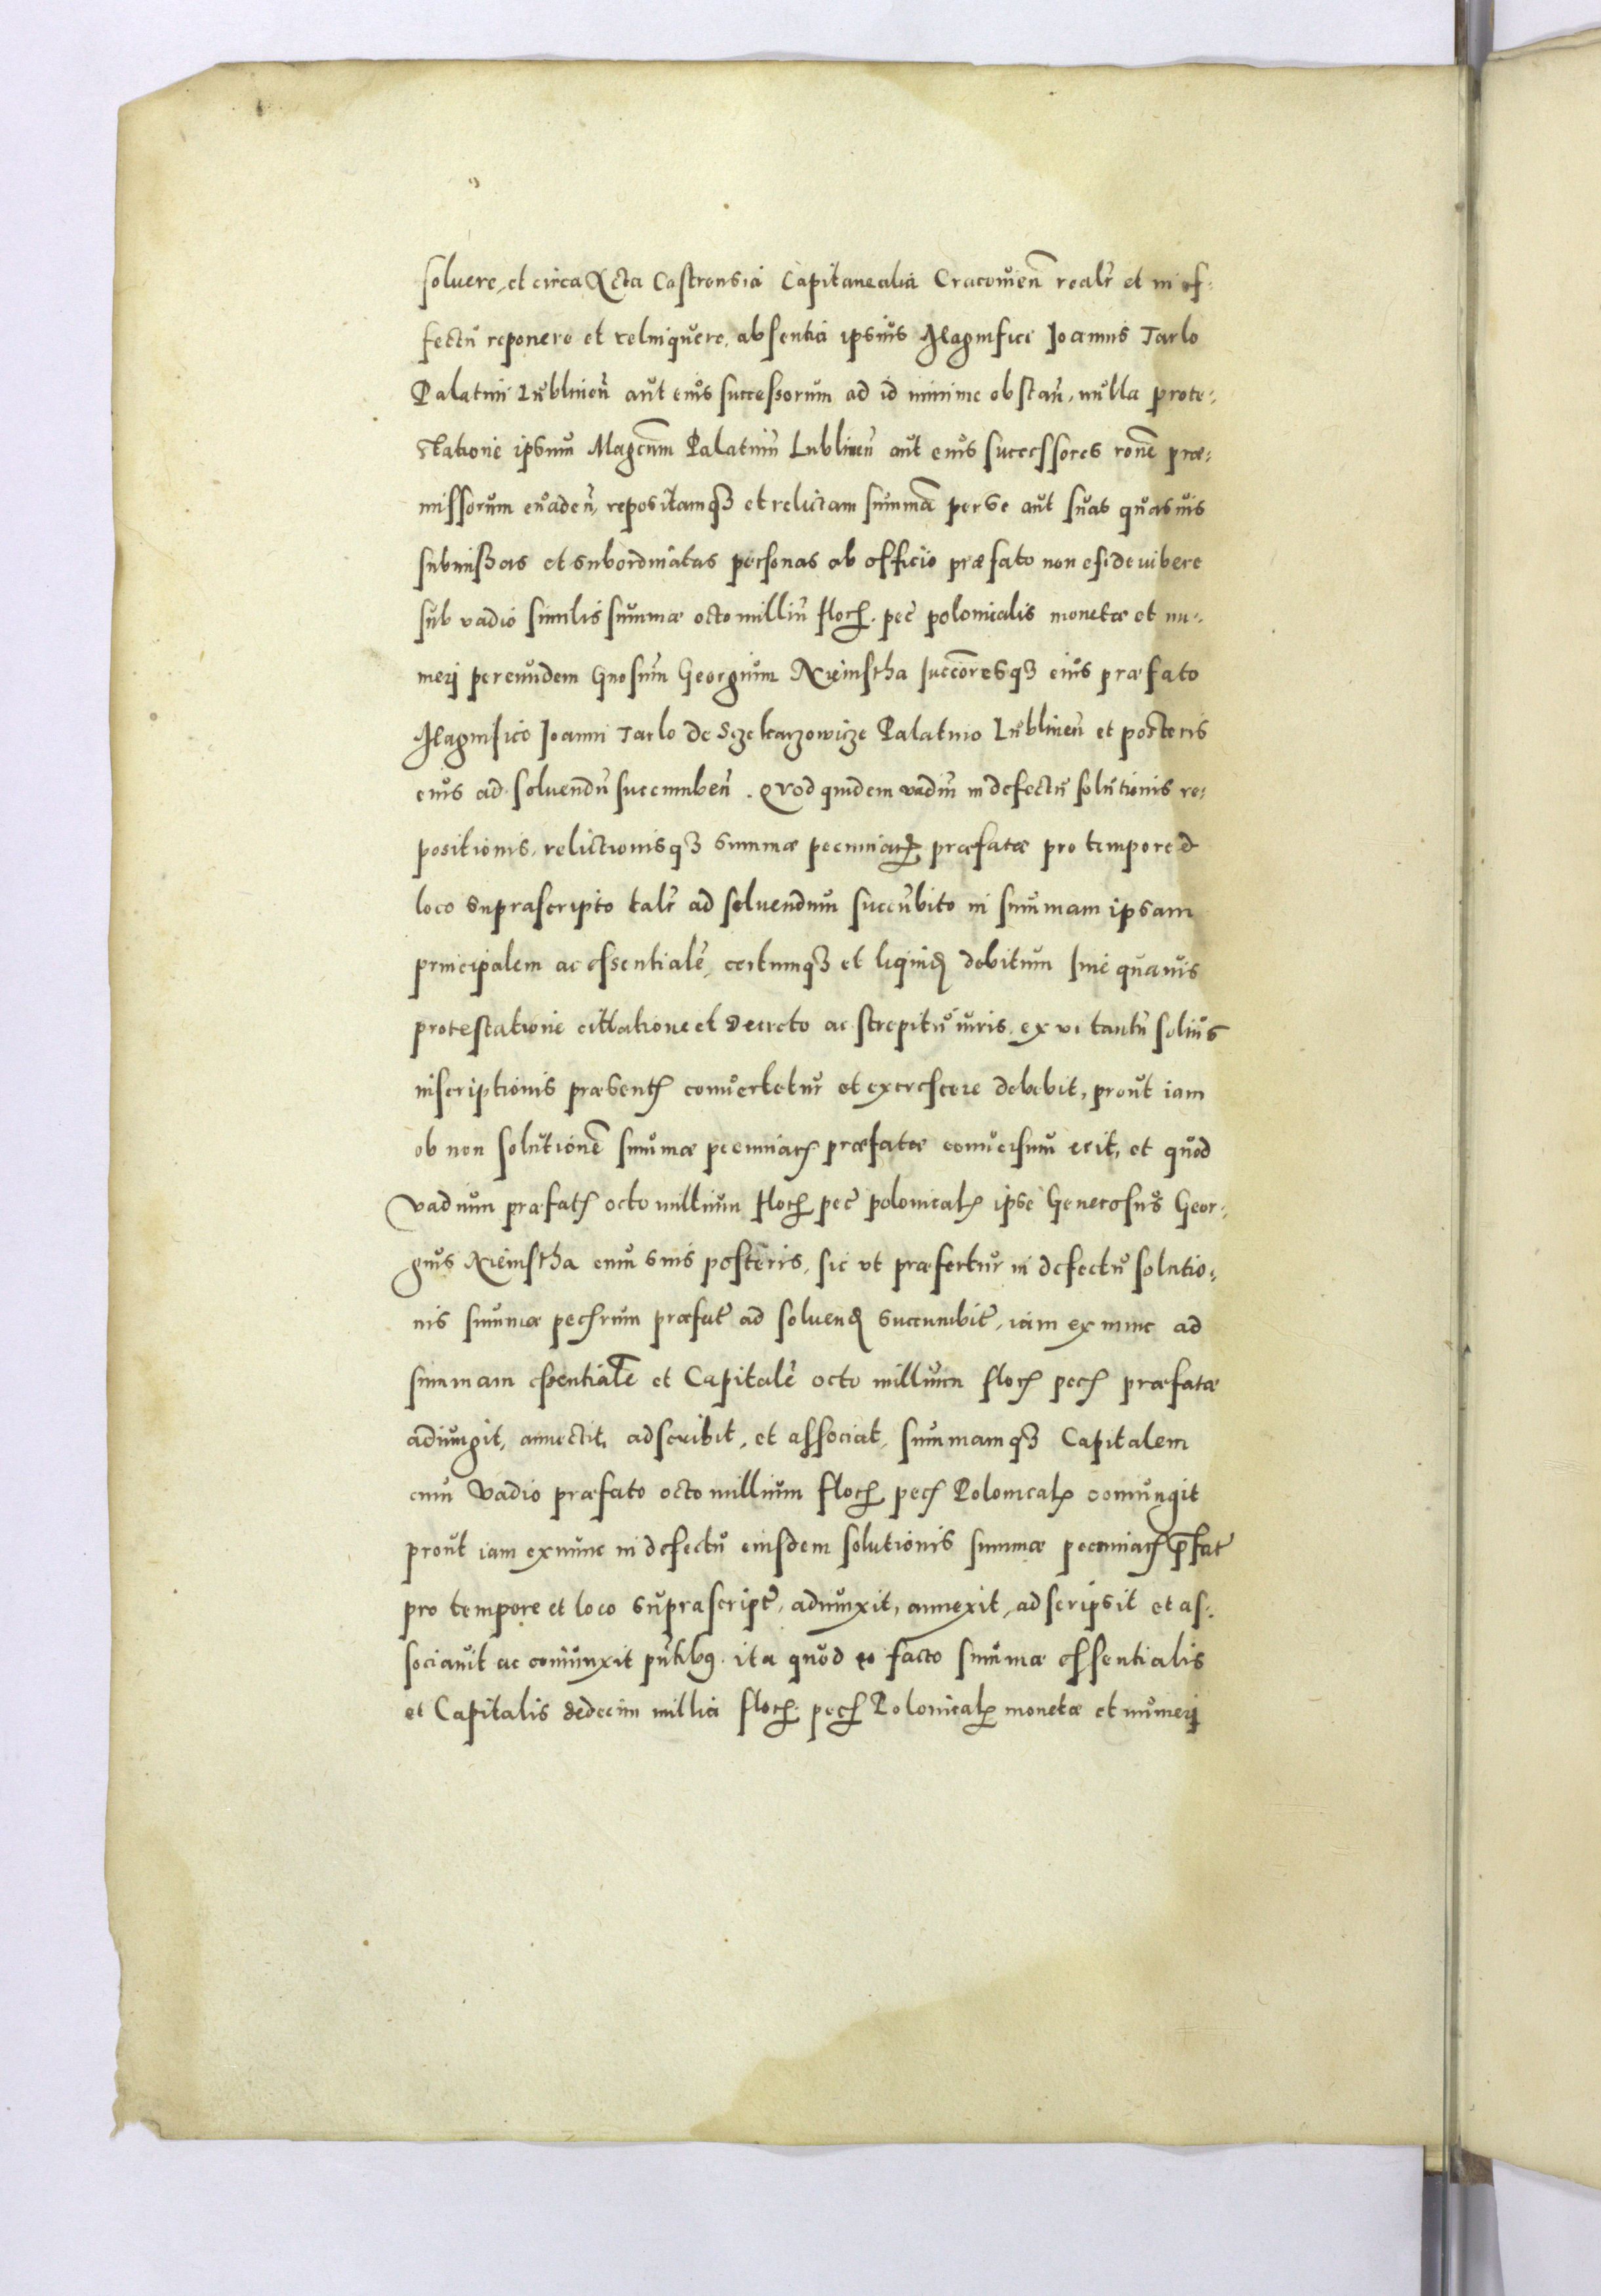 soluere, et circa Acta Castrensia Capitanealia Cracouien̄ realr̄ et in ef-
fectū reponere et relinquere, absentia ipsius Magnifici Joannis Tarlo
Palatini Lublinen̄ aut eius successorum ad id minime obstan̄, nulla prote-
statione ipsum Magcum̄ Palatinū Lublinen̄ aut eius successores ronē præ-
missorum euaden̄, repositamq3 et relictam summā per se aut suas quasuis
submissas et subordinatas personas ab officio præfato non
sub vadio similis summæ octo milliū floꝝ. pec̄ polonicalis monetæ et nu-
merj per eundem Gnosum̄ Georgium Niemstha succōresq3 eius præfato
Magnifico Joanni Tarlo de Sczekarzowicze Palatino Lublinen̄ et posteris
eius ad soluendū succumben̄. Quod quidem vadiū in defectū solutionis re-
positionis, relictionisq3 summæ pecuniaꝝ præfatæ pro tempore et
loco suprascripto talr̄ ad soluendum succūbito in summam ipsam
principalem ac essentialē, certumq3 et liquiđ debitum sine quauis
protestatione cittatione et decreto ac strepitu iuris, ex vi tantū solius
inscriptionis præsentꝭ conuertetur et excrescere debebit, prout iam
ob non solutionē summæ pecuniaꝝ præfatæ conuersum erit, et quod
vadium præfatꝭ octo millium floꝝ pec̄ polonicalꝭ ipse Generosus Geor-
gius Niemstha cum suis posteris, sic ut præfertur in defectu solutio-
nis summæ pecꝭrum præfatꝭ ad soluenđ succumbit, iam ex nunc ad
summam essentialē et Capitalē octo millium floꝝ pecꝭ præfatæ
adiungit, annectit, adscribit, et associat, summamq3 Capitalem
cum Vadio præfato octo millium floꝝ pecꝭ Polonicalꝭ coniungit
prout iam ex nunc in defectu eiusdem solutionis summæ pecuniaꝝ p̄fatꝭ
pro tempore et loco suprascriptꝭ, adiunxit, annexit, adscripsit et as-
sociauit ac coniunxit pn̄tibꝰ. ita quod eo facto summæ essentialis
et Capitalis sedecim millia floꝝ. pecꝭ Polonicalꝭ monetæ et numerj